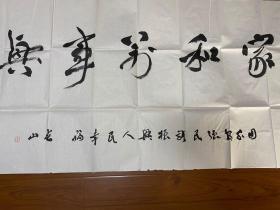 家和萬事興
国家富强民族振興人民幸福 山